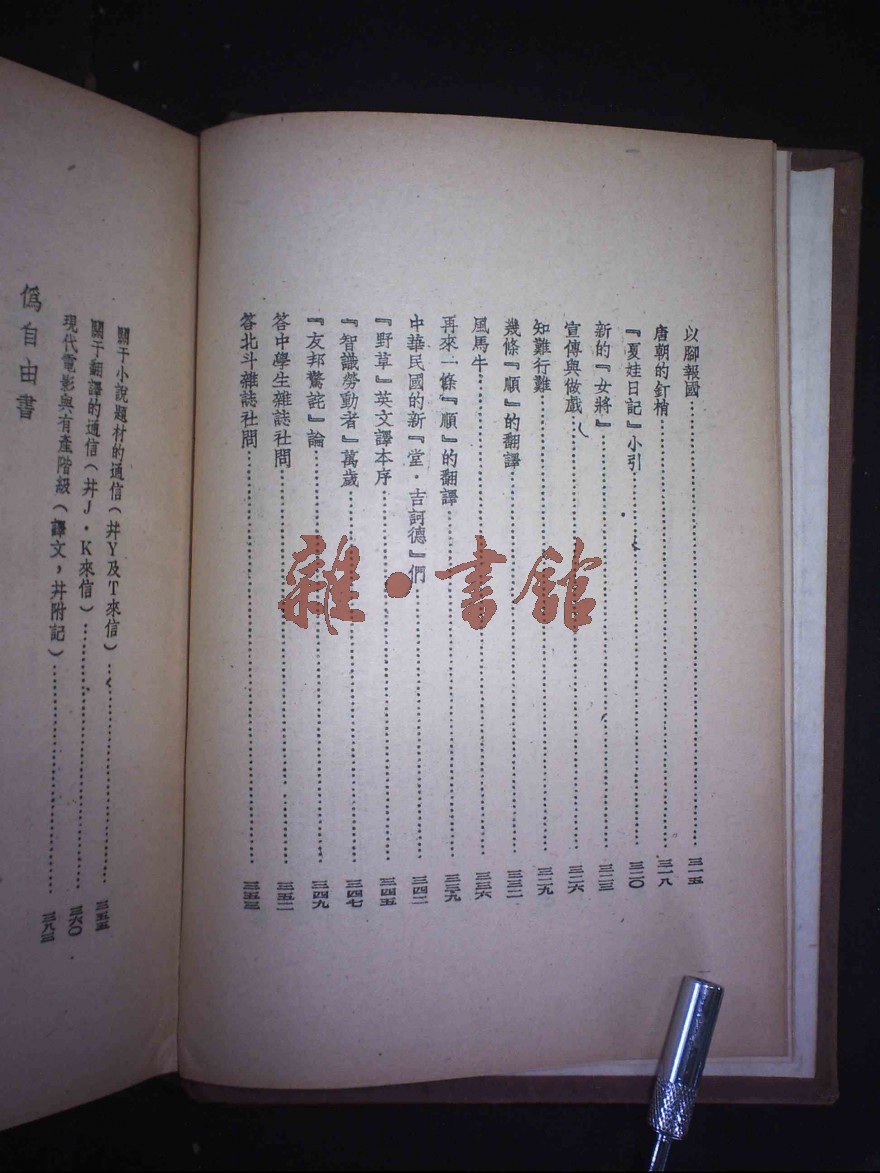 以腳報國……三一五
唐朝的釘梢……三一八
『夏娃日記』小引……三二〇
新的『女將』……三二三
宣傳與做戲……三二六
知難行難……三二九
幾條『順』的翻譯……三三二
風馬牛……三三六
再來一條『順』的翻譯……三三九
中華民國的新『堂・吉訶德』們……三四二
『野草』英文譯本序……三四五
『智識勞動者』萬歲……三四七
『友邦驚詫』論……三四九
答中學生雜誌社問……三五二
答北斗雜誌社問……三五三
關于小說題材的通信(并Y及T來信)……三五五
關于翻譯的通信(并J・K來信)……三六〇
現代電影與有產階級(譯文,并附記)……三八三
僞自由書
雜・書館